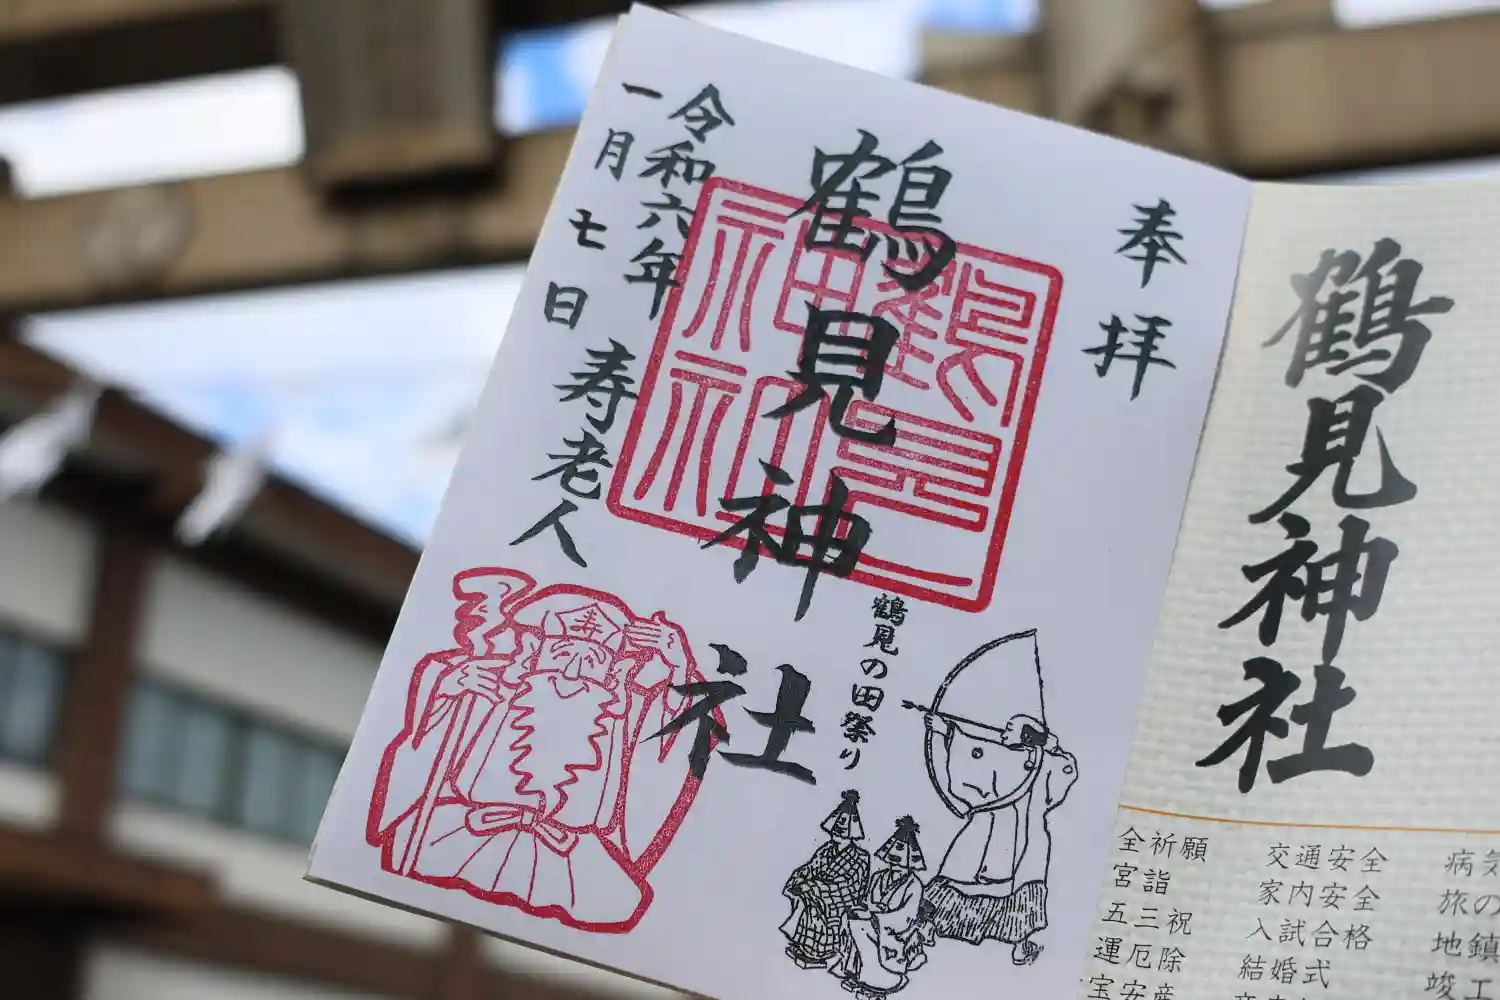 奉拝
鶴見神社
令和六年
一月七日
寿老人
寿
鶴見の田祭り
鶴見神社
鶴見神社
全祈願
宮詣
五三祝
運厄除
宝安産
交通安全
家内安全
入試合格
結婚式
病気
旅の
地鎮
竣工